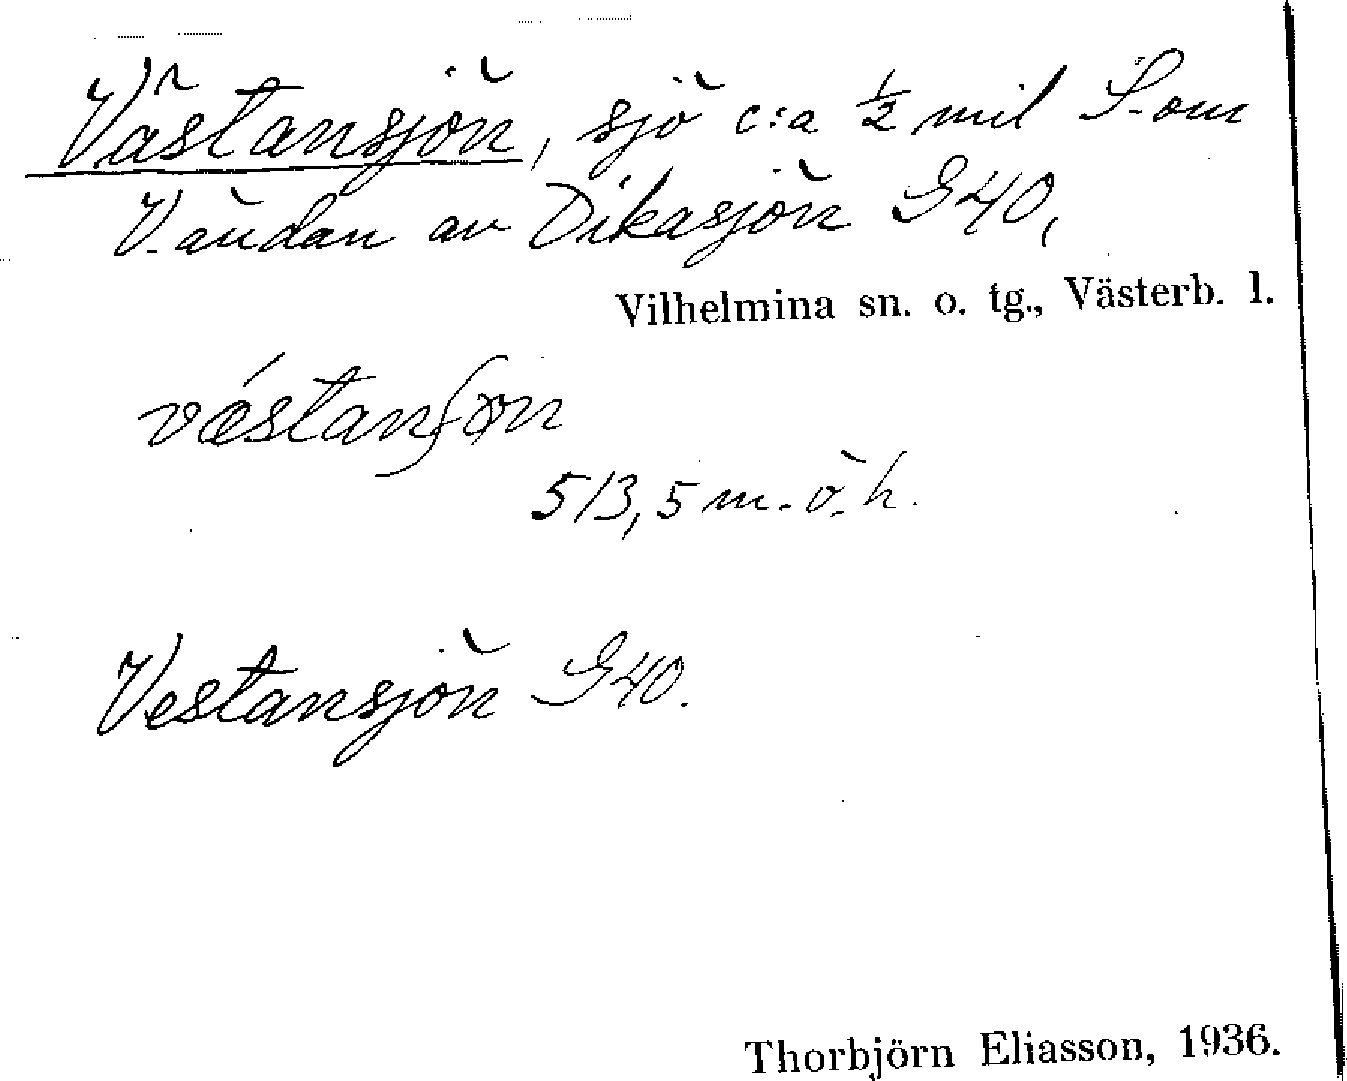 Västansjön, sjö c:a ½ mil S. om
V. ändan av Dikasjön G40,
Vilhelmina sn. o. tg., Västerb. l.
vǽstanʃøn
513,5 m. ö. h.
Vestansjön G40.
Thorbjörn Eliasson, 1936.